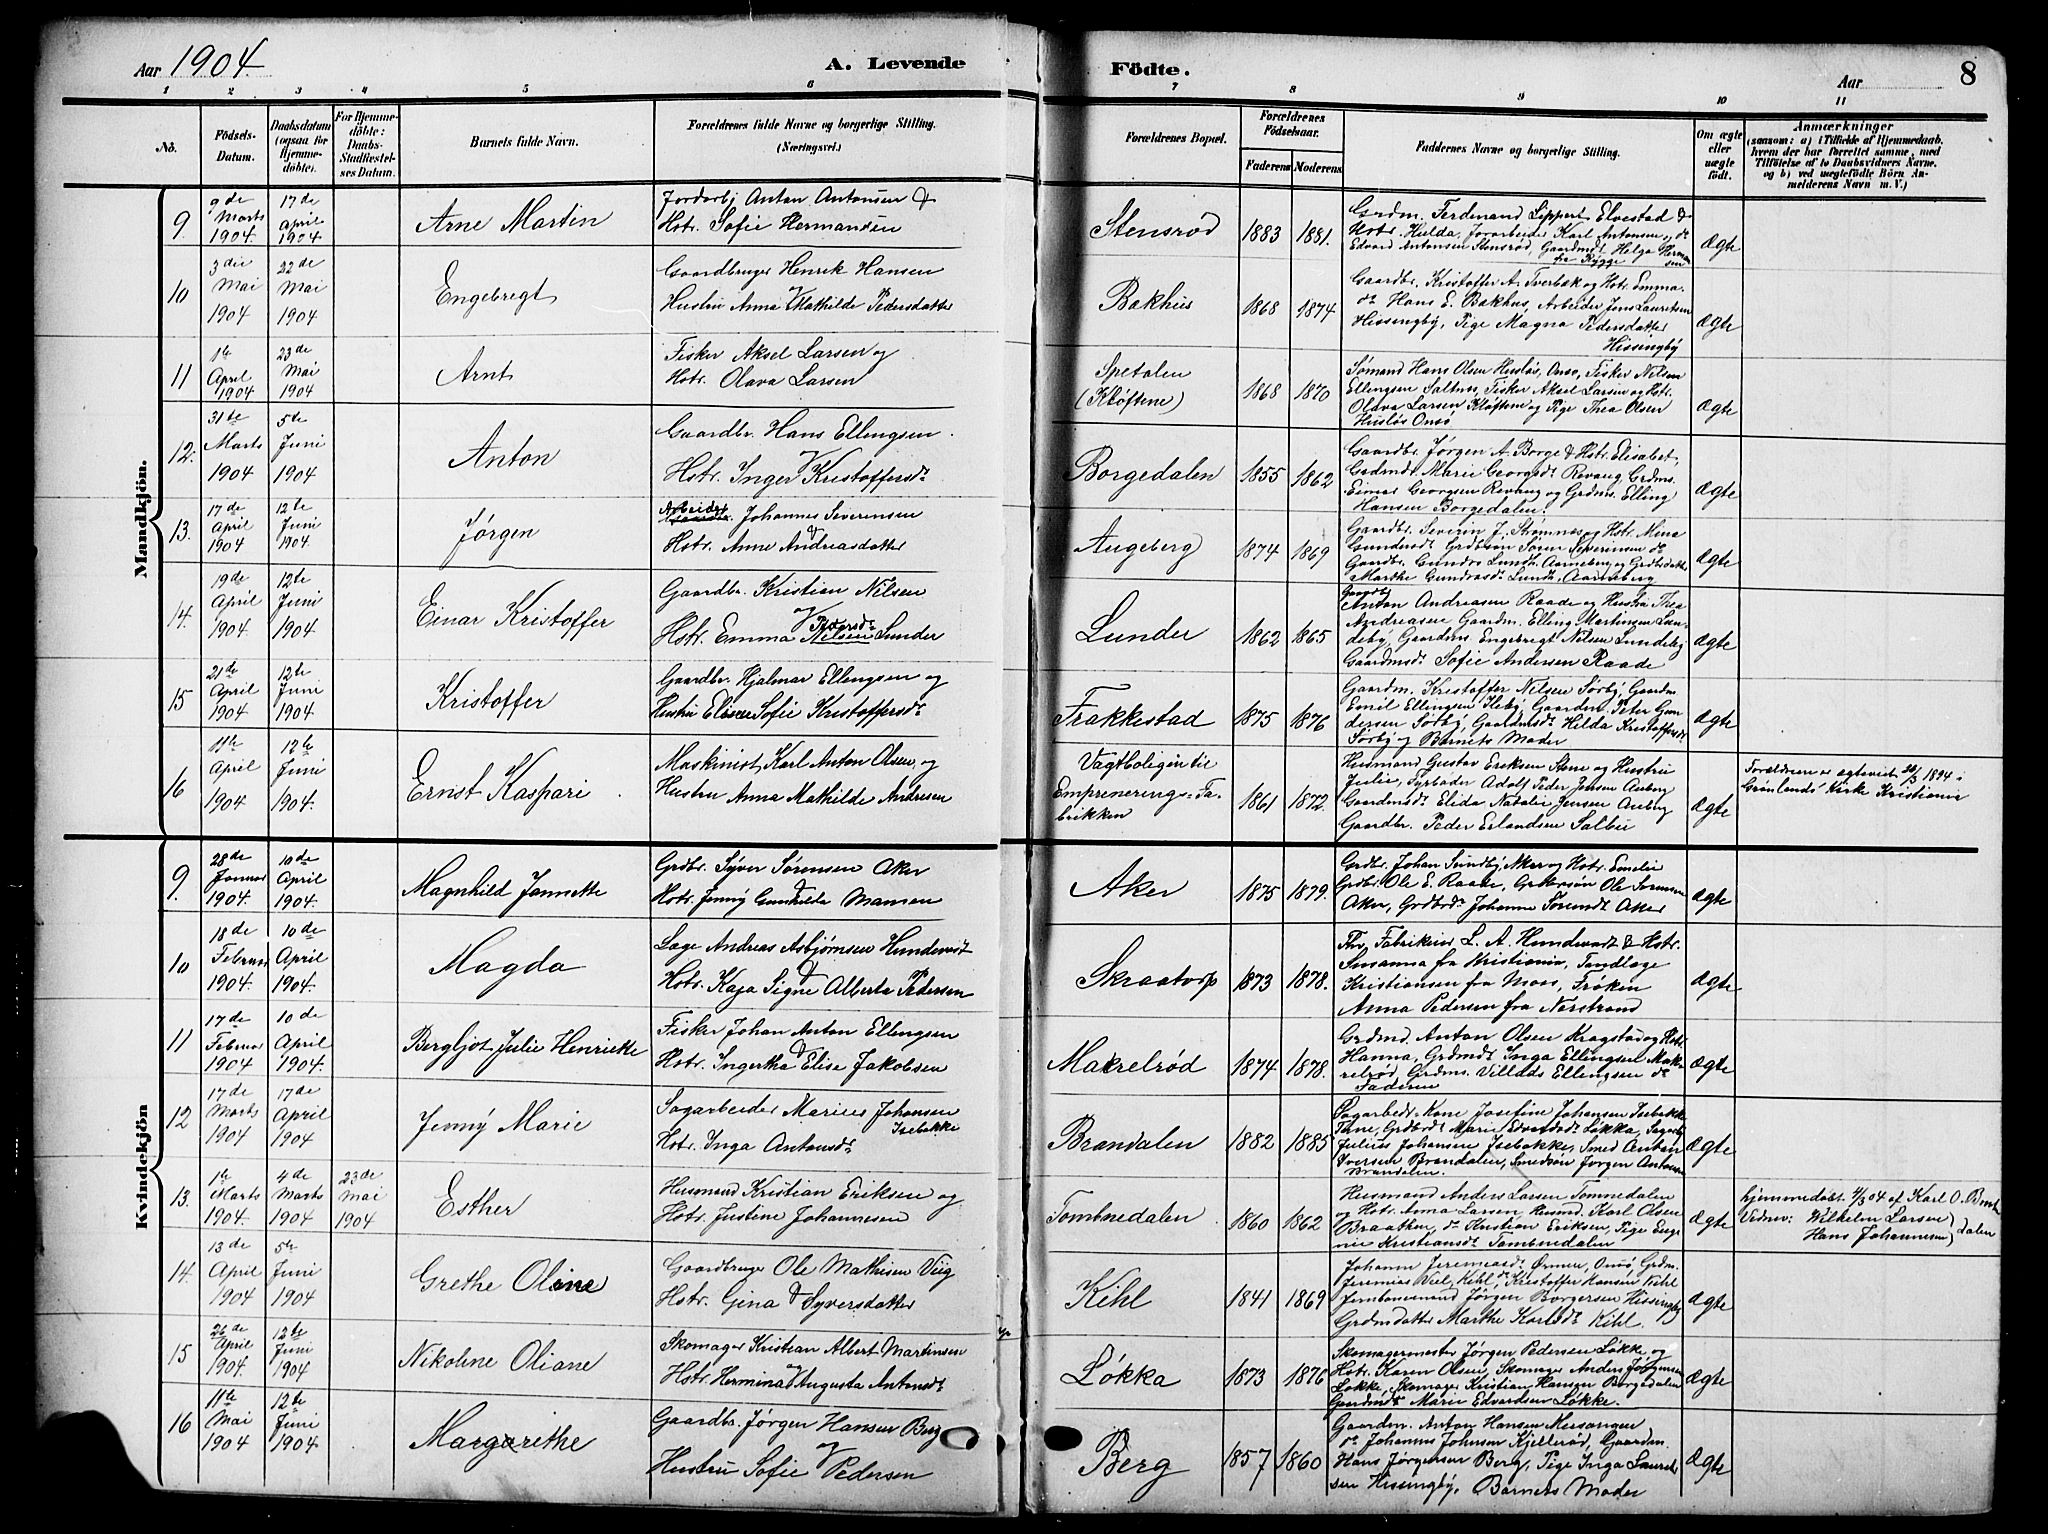 Aar 1904.
A. Levende
Födte.
Aar
8
1 2 3 4 5 6 7 8 9 10 11
No.
Födsels-
Datum.
Daabsdatum
(ogsaa for
Hjemme-
döbte).
For Hjemme-
döbte:
Daabs-
Stadfæstel-
ses Datum.
Barnets fulde Navn.
Forældrenes fulde Navne og borgerlige Stilling.
(Næringsvei.)
Forældrenes Bopæl.
Forældrenes
Födselsaar.
Faderens
Moderens
Faddernes Navne og borgerlige Stilling.
Om ægte
eller
uægte
födt.
Anmærkninger
(saasom: a) i Tilfælde af Hjemmedaab,
hvem der har forrettet samme, med
Tilföielse af to Daabsvidners Navne,
og b) ved uægtefödte Börn An-
melderens Navn m. V.)
Mandkjön.
9.
9de
Marts
1904.
17de
April
1904
Arne Martin
Jordarbj Anton Antonsen &
Hstr. Sofie Hermansen
Stensrød
1883 1881.
Grdm. Ferdinand Lippert Elvestad &
Hstr. Hilda, Jorarbeider Karl Antonsen, ds
Edvard Antonsen Stensrød, Gaardmdt Helga Herman
fra Rygge sen
Ægte
10
3die
Mai
1904
22de
Mai
1904
Engebregt
Gaardbruger Henrik Hansen
Hustru Anna Mathilde Pedersdatter
Bakhus
1868 1874
Gaardbr. Kristoffer A. Tverbæk og Hstr. Emma.
ds Hans E. Bakhus, Arbeider Jens Lauritsen
Hissingby, Pige Magna Pedersdatter
Hissingby
Ægte
11
1te
April
1904
23de
Mai
1904
Arnt
Fisker Aksel Larsen og
Hstr. Olava Larsen
Spetalen
(Kløftene)
1868 1870
Sømand Hans Olsen Husløs, Onsø, Fisker Nilsen
Ellingsen Saltnes, Fisker Aksel Larsen og Hstr.
Olava Larsen Kløftene og Pige Thea Olsen
Husløs Onsø
Ægte
12.
31te
Marts
1904
5te
Juni
1904
Anton
Gaardbr. Hans Ellingsen.
Hstr. Inger Kristoffersdt
Borgedalen
1855 1862
Gaardbr. Jørgen A. Borge & Hstr. Elisabet,
Grdmdt. Marie Georgsdt Revaug Grdms.
Einar Georgsen Revaug og Grdms. Elling
Hansen Borgedalen.
Ægte
13.
17de
April
1904
12te
Juni
1904.
Jørgen
Arbeider Johannes Severinsen
&
Hstr. Anne Andreasdatter
Augeberg
1874 1869
Gaardbr. Severin J. Strømnes og Hstr. Mina
Gundersdt Grdbsøn Søren Severinsen ds
Gaardbr. Gundro Lundh. Aarneberg og Grdbrdatter
Marthe Gundrosdt Lundh, Aarneberg
Ægte
14.
19de
April
1904
12te
Juni
1904
Einar Kristoffer
Gaardbr. Kristian Nilsen
og Pedersdt
Hstr. Emma Nilsen Lunder
Lunder
1862 1865
Gaardb
Anton Andreasen Raade og Hustru Thea
Andreasen Gaardm. Elling Martinsen Lun-
deby, Gaardms. Engebregt Nilsen Lundeby
Gaardmsdt. Sofie Andersen Raade
Ægte
15
21de
April
1904
12te
Juni
1904
Kristoffer
Gaardbr. Hjalmar Ellingsen og
Hustru Elise Sofie Kristoffersdt
Frakkestad
1875 1876
Gaardm. Kristoffer Nilsen Sørby, Gaardm.
Emil Ellingsen Huseby, Gaardm. Peter Gun
dersen Sørby, Gaardmsdt Hilda Kristoffersdt.
Sørby og Barnets Moder
Ægte
16
11te
April
1904
12te
Juni
1904.
Ernst Kaspari.
Maskinist Karl Anton Olsen, og
Hustru Anna Mathilde Andresen
Vagtboligen til
Emprenerings-Fa-
brikken
1861 1872.
Husmand Gustav Eriksen Stene og Hustru
Julie, Fyrbøder Adolf Peder Jensen Auberg
Gaardmsdt. Elida Natalie Jensen Auberg
Gaardbr. Peder Erlandsen Salbu
Ægte
Forældrene er ægteviet 26/3 1894 i
Grønlands Kirke Kristiania
Kvindekjön
9.
28de
Januar
1904.
10de
April
1904.
Magnhild Jannette
Grdbr. Syver Sørensen Aker
&
Hstr. Jenny Gunhilde Mansen
Aker
1875 1879.
Grdbr. Johan Sundby, Aker og Hstr. Emelie
Grdbr. Ole E. Raade, Grdbrsøn Ole Sørensen
Aker, Grdbrdt. Johanne Sørensdt Aker
Ægte
10
18de
Februar
1904.
10de
April
1904.
Magda
Læge Andreas Asbjørnsen Hundevadt
&
Hstr. Kaja Signe Alberta Pedersen
Skraatorp
1873 1878.
Thv. Fabrikeier L. A. Hundevadt & Hstr.
Susanna fra Kristiania, Tandlæge
Kristiansen fra Moss, Frøken
Anna Pedersen fra Nerstrand
Ægte
11
17de
Februar
1904
10de
April
1904.
Bergljot Julie Henriette
Fisker Johan Anton Ellingsen
&
Hstr. Ingertha Elise Jakobsen
Makrelrød
1874 1878.
Grdmd. Anton Olsen Kragstad og Hstr.
Hanna, Grdmdt Inga Ellingsen Mak-
relrød, Grdms. Villads Ellingsen ds
Faderen
Ægte
12
17de
Marts
1904
17de
April
1904
Jenny Marie
Sagarbeider Marius Johansen
Isebakke
Hstr. Inga Antonsdt
Brandalen
1882 1885
Sagarbeds. Kone Josefine Johansen Isebakke
Tune, Grdbrdt Marie Edvardsdt Løkka, Sagarb.
Julius Johansen Isebakke, Smed Anton
Iversen Brandalen, Smedsøn Jørgen Antonsen
Brandalen.
Ægte
13.
1te
Marts
1904
4de
Marts
1904
23de
Mai
1904
Esther
Husmand Kristian Eriksen og
Hstr. Justine Johannesen
Tombnedalen
1860 1862
Husmand Anders Larsen Tomnedalen
og Hstr. Anna Larsen Husmd. Karl Olsen
Braatken, ds Kristian Eriksen, Pige Euge
nie Kristiansdt. Tombnedalen
Ægte
hjemmedøbt 4/3 04 af Karl O. Bnt
Vidner: Wilhelm Larsen) dalen
Hans Johannesen)
14.
13de
April
1904
5te
Juni
1904
Grethe Oline
Gaardbruger Ole Mathisen Viig
&
Hstr. Gina Syversdatter
Kihl
1841 1869
Johann Jeremiasdt Ørmen, Onsø, Grdm.
Jeremias Viel, Kihl, ds Kristoffer Hansen Kihl
Jernbanemand Jørgen Borgersen Hissingby
Grdmdatter Marthe Karlsdt Kihl.
Ægte
15
26de
April
1904.
12te
Juni
1904
Nikoline Oliane
Skomager Kristian Albert Martinsen
og
Hstr. Hermina Augusta Antonsdt
Løkka
1873 1876
Skomagermester Jørgen Pedersen Løkke og
Hstr. Karen Olsen, Skomager Anders Jørgensen
Løkke, Skomager Kristian Hansen Borgedalen
Gaardmdt Marie Edvardsen Løkke.
Ægte
16
11te
Mai
1904
12te
Juni
1904
Margarethe
Gaardbr. Jørgen Hansen Berg
Hustru Sofie Pedersen
Berg
1857 1860
Gaardm. Anton Hansen Husangen
ds Johannes Johnsen Kjellerød, Gaardm.
Hans Jørgensen Berg, Pige Inga Laurit
sen Hissingby, Barnets Moder
Ægte